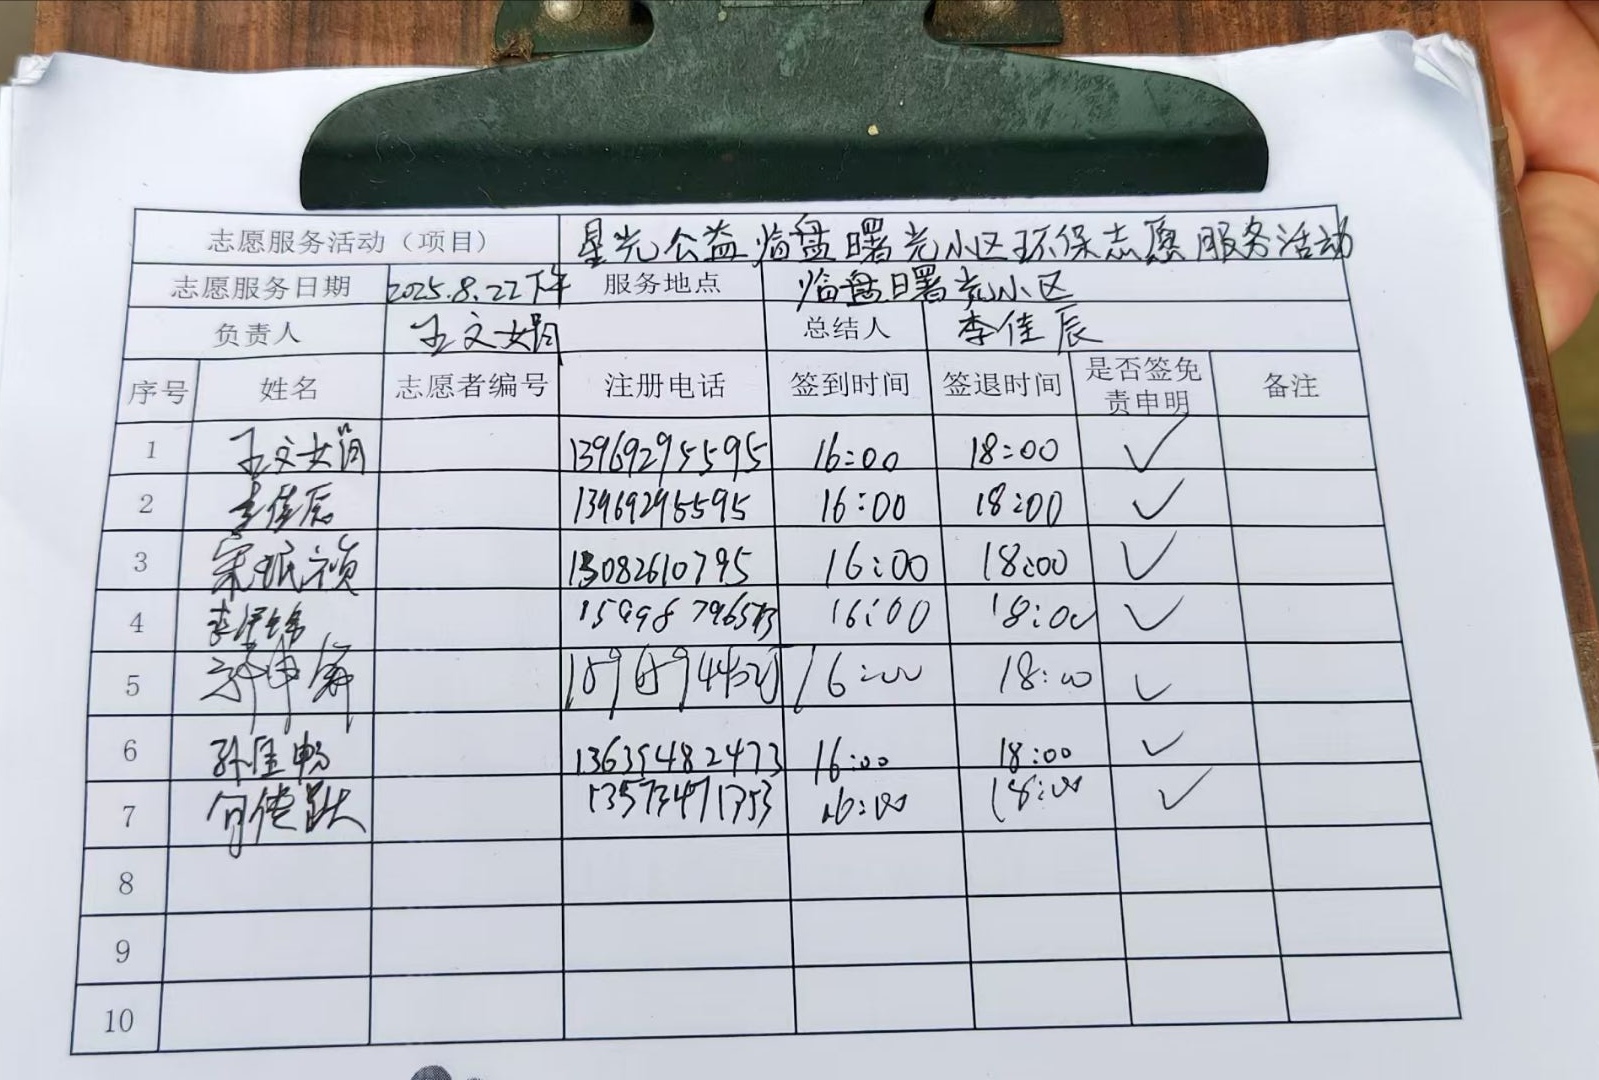 志愿服务活动（项目） 星光公益临盘曙光小区环保志愿服务活动
志愿服务日期 2025.8.22下午 服务地点 临盘曙光小区
负责人 王文娟 总结人 李佳辰
序号 姓名 志愿者编号 注册电话 签到时间 签退时间 是否签免责申明 备注
1 王文娟 13969295595 16:00 18:00 ✓
2 李佳辰 13969295595 16:00 18:00 ✓
3 13082610795 16:00 18:00 ✓
4 16:00 18:00 ✓
5 16:00 18:00 ✓
6 孙佳畅 16:00 18:00 ✓
7 13573471353 16:00 18:00 ✓
8
9
10